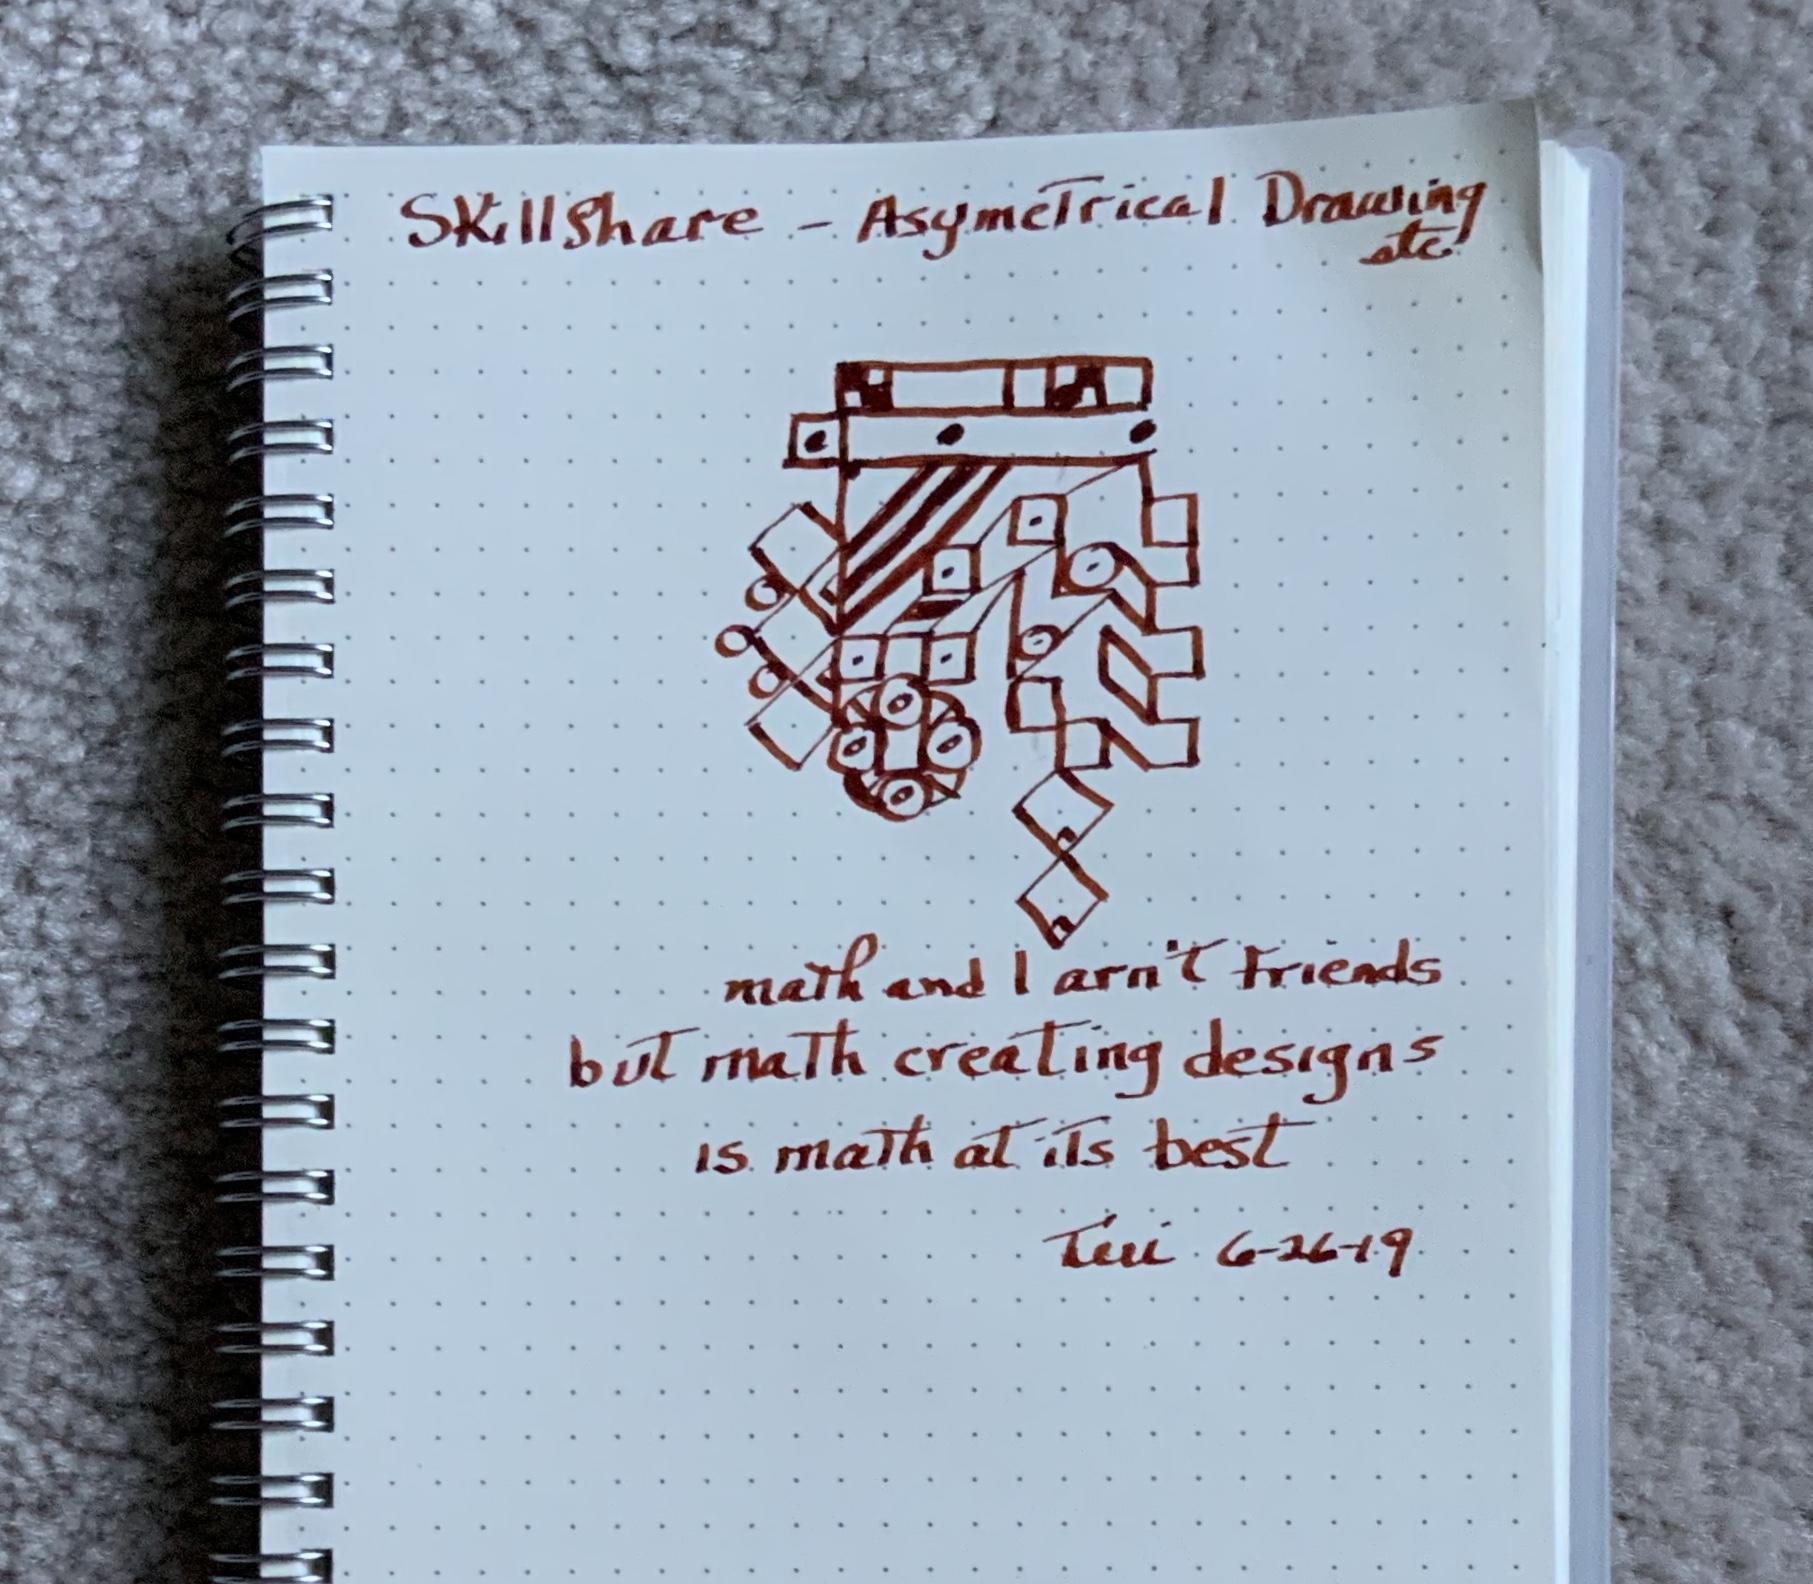 Skillshare - Asymetrical Drawing
etc.
math and I arn't friends
but math creating designs
is math at its best
Teri 6-26-19